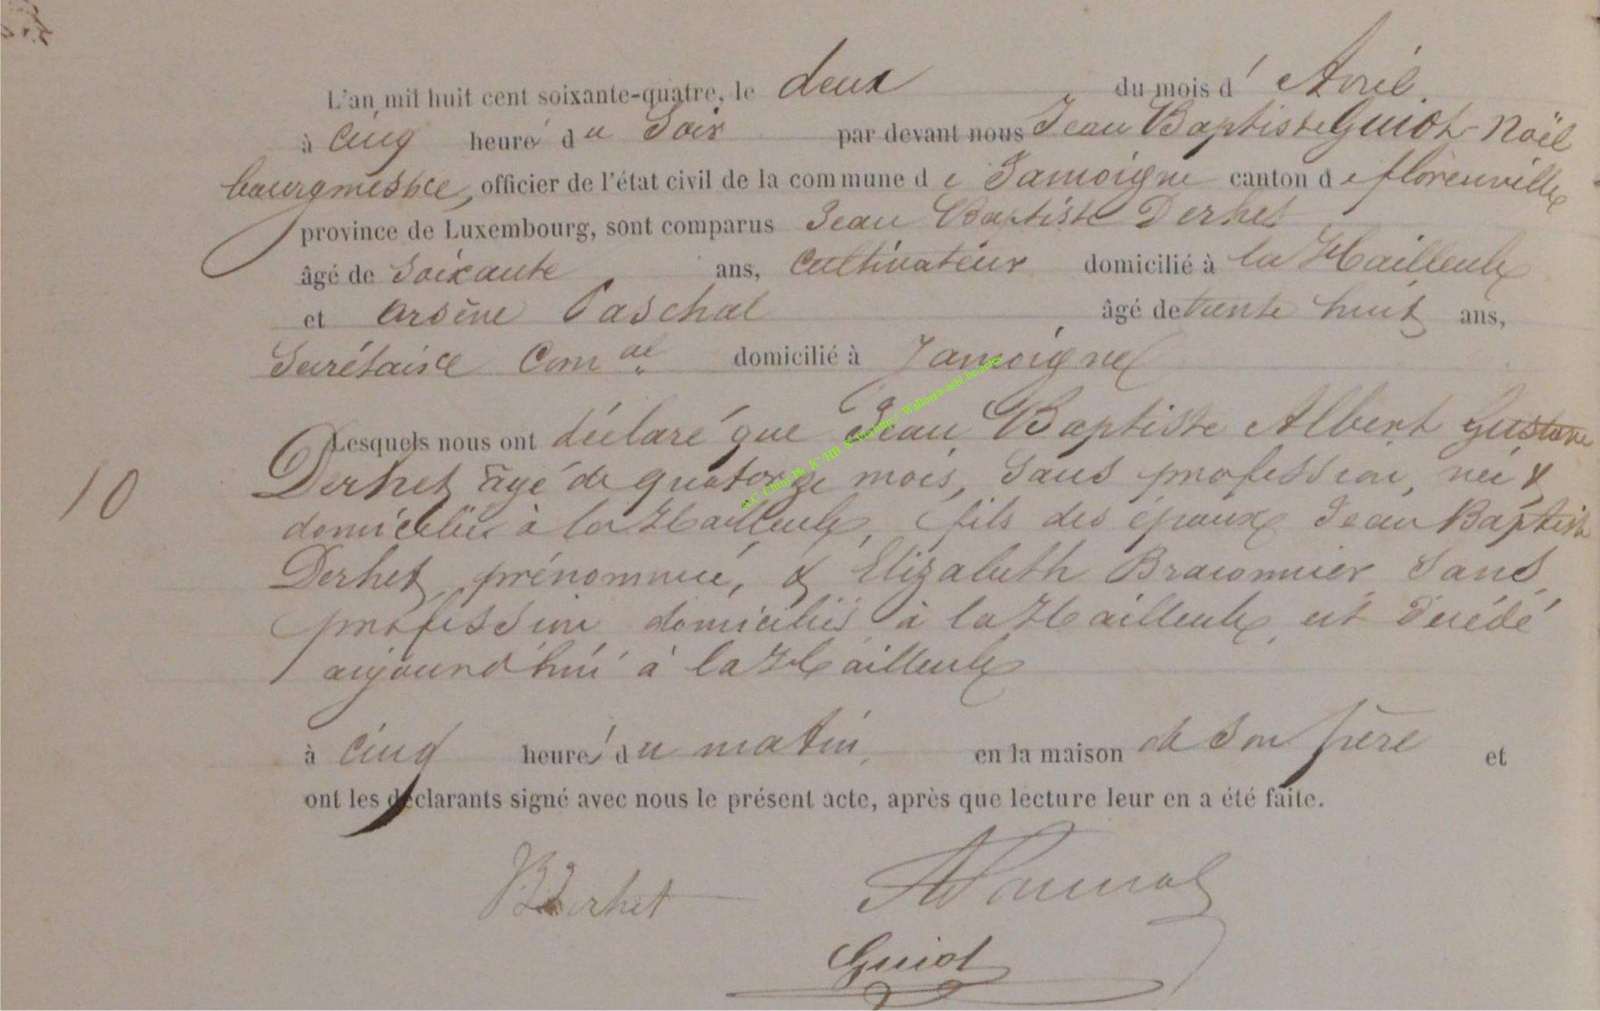 L'an mil huit cent soixante-quatre, le deux du mois d' Avril
à cinq heure d u soir par devant nous Jean Baptiste Guiot Noël
bourgmestre, officier de l'état civil de la commune d e Jamoigne canton d e florenville
province de Luxembourg, sont comparus Jean Baptiste Derhet
âgé de Soixante ans, cultivateur domicilié à la Hailleule
et Arsène Paschal âgé de trente huit ans,
Secrétaire Com.al domicilié à Jamoigne
Lesquels nous ont déclaré que Jean Baptiste Albert Gustave
Derhet âgé de quatorze mois, sans profession, né &
domicilié à la Hailleule, fils des époux Jean Baptiste
Derhet, prénommé, & Elizabeth Braconnier sans
profession domiciliés à la Hailleule, est décédé
10
aujourd'hui à la Hailleule
à cinq heure d u matin, en la maison de son père et
ont les déclarants signé avec nous le présent acte, après que lecture leur en a été faite.
JBDerhet
Guiot